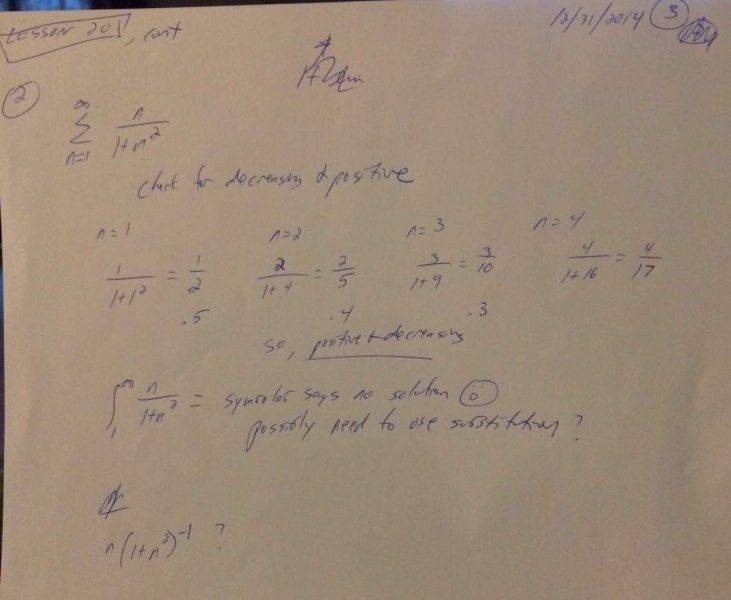 LESSON 20, cont
12/31/2014 3
2
∞
∑ n/(1+n²)
n=1
check for decreasing & positive
n=1 n=2 n=3 n=4
1/(1+1²) = 1/2 2/(1+4) = 2/5 3/(1+9) = 3/10 4/(1+16) = 4/17
.5 .4 .3
so, positive + decreasing
∫₁^∞ n/(1+n²) = symbolab says no solution
possibly need to use substitution?
n(1+n²)⁻¹ ?